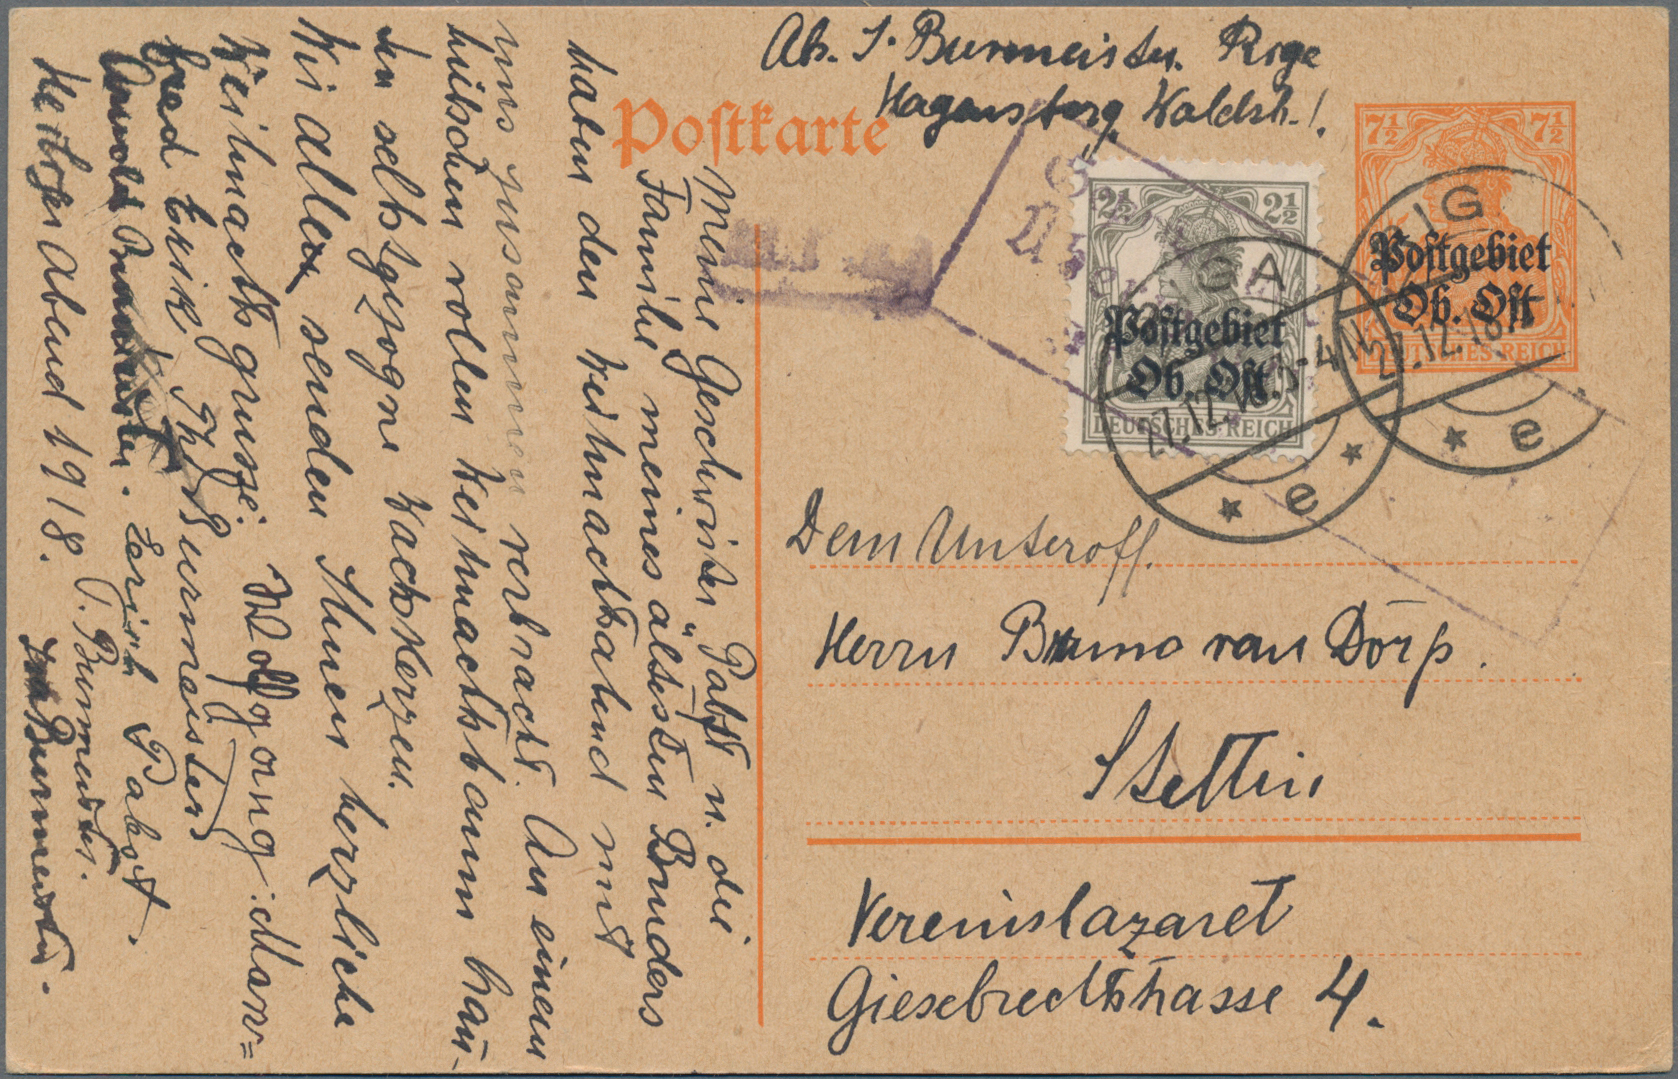 Abs. J. Burmeister. Riga
Hagensberg, Waldstr. 1.
Postkarte
7½ 7½
Postgebiet
Ob. Ost
DEUTSCHES REICH
2½ 2½
Postgebiet
Ob. Ost
DEUTSCHES REICH
RIGA
27.12.18. 3-4 N
* e *
RIG
27.12.18
* e
Dem Unteroff.
Herrn Bruno van Dorp.
Stettin
Vereinslazaret
Giesebrechtstrasse 4.
Meine Geschwister „Pabst u. die
Familie meines ältesten Bruders
haben den Weihnachtabend mit
uns zusammen verbracht. An einem
hübschen vollen Weihnachtbaum hän-
den selbstgezogne Wachskerzen.
Wir alle senden Ihnen herzliche
Weihnachtsgrüsse. Wolfgang.
Erik Th. Burmeister
Pabst.
Heiligerabend 1918. J. Burmeister.
Burmeister.